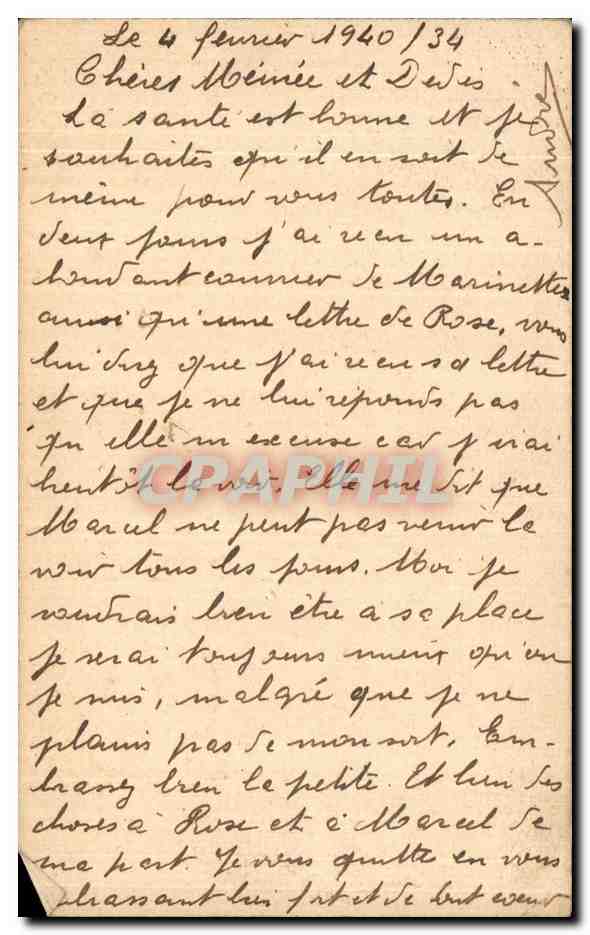 Le 4 fevrier 1940/34
Chères Mémée et Dedes.
La santé est bonne et je
souhaites qu'il en soit de
même pour vous toutes. En
deux jours j'ai recu un a-
bondant courrier de Marinette
aussi qu'une lettre de Rose, vous
lui direz que j'ai recu sa lettre
et que je ne lui réponds pas
qu elle m excuse car j irai
bientôt la voir. Elle me dit que
Marcel ne peut pas venir la
voir tous les jours. Moi je
voudrais bien être a sa place
je serai toujours mieux qu'ou
je suis, malgré que je ne
plains pas de mon sort. Em-
brassez bien la petite. Et bien des
choses à Rose et à Marcel de
ma part. Je vous quitte en vous
embrassant bien fort et de tout coeur
André
CPARPHIL